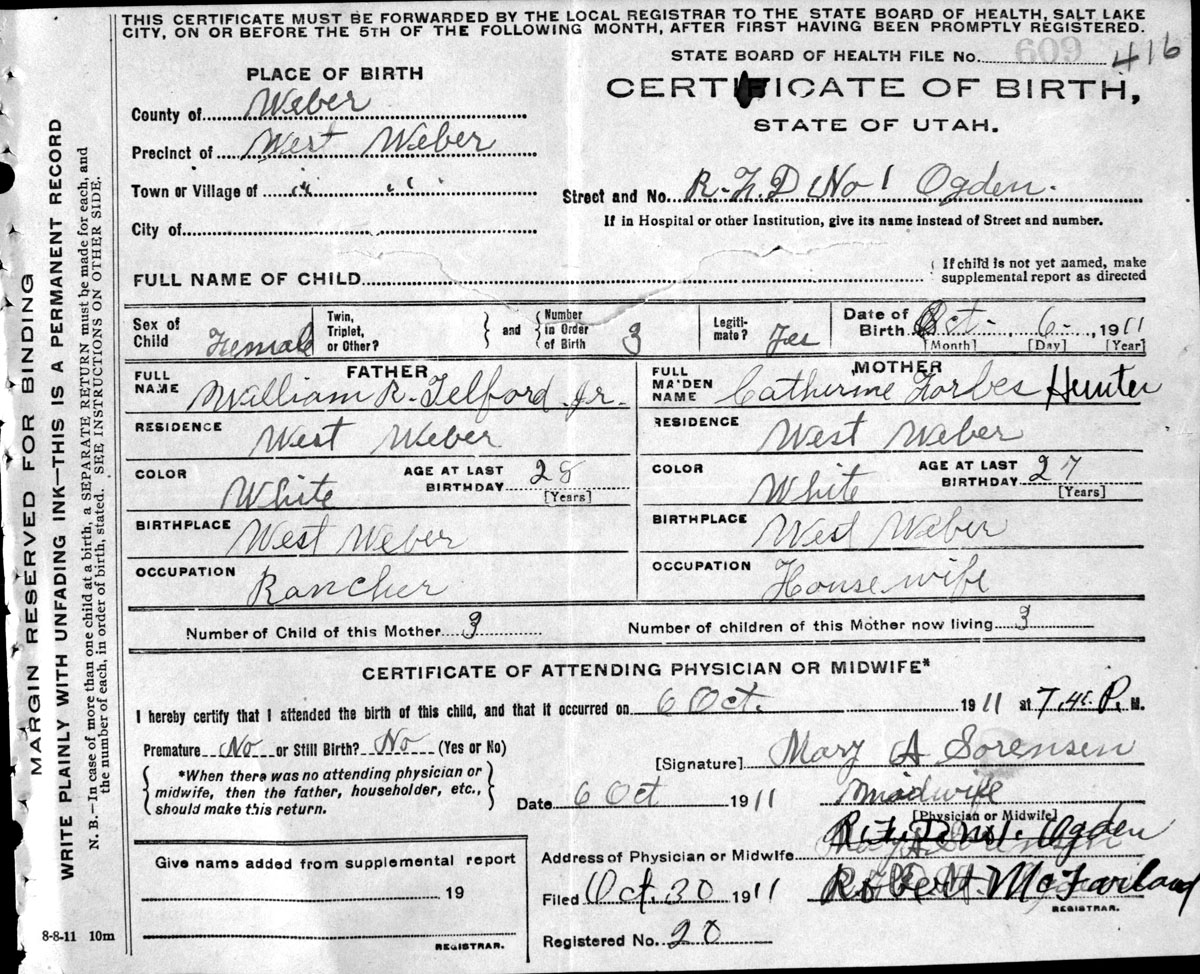 THIS CERTIFICATE MUST BE FORWARDED BY THE LOCAL REGISTRAR TO THE STATE BOARD OF HEALTH, SALT LAKE
CITY, ON OR BEFORE THE 5TH OF THE FOLLOWING MONTH, AFTER FIRST HAVING BEEN PROMPTLY REGISTERED.
STATE BOARD OF HEALTH FILE No. 609 416
PLACE OF BIRTH
CERTIFICATE OF BIRTH,
STATE OF UTAH.
County of Weber
Precinct of West Weber
Town or Village of " "
Street and No. R.F.D No 1 Ogden.
If in Hospital or other Institution, give its name instead of Street and number.
City of
FULL NAME OF CHILD
If child is not yet named, make
supplemental report as directed
Sex of Child Female
Twin, Triplet, or Other?
and Number in Order of Birth 3
Legitimate? Yes
Date of Birth Oct. 6 1911
[Month] [Day] [Year]
FATHER
FULL NAME William R. Telford Jr.
RESIDENCE West Weber
COLOR White AGE AT LAST BIRTHDAY 28 [Years]
BIRTHPLACE West Weber
OCCUPATION Rancher
MOTHER
FULL MAIDEN NAME Catherine Forbes Hunter
RESIDENCE West Weber
COLOR White AGE AT LAST BIRTHDAY 27 [Years]
BIRTHPLACE West Weber
OCCUPATION Housewife
Number of Child of this Mother 3 Number of children of this Mother now living 3
CERTIFICATE OF ATTENDING PHYSICIAN OR MIDWIFE*
I hereby certify that I attended the birth of this child, and that it occurred on 6 Oct. 1911 at 7.45 P. M.
Premature No or Still Birth? No (Yes or No)
*When there was no attending physician or
midwife, then the father, householder, etc.,
should make this return.
[Signature] Mary A Sorensen
Date 6 Oct 1911 Midwife
[Physician or Midwife]
Address of Physician or Midwife R.F.D No 1. Ogden
Filed Oct. 30 1911 Robert McFarland
REGISTRAR.
Registered No. 20
Give name added from supplemental report
19
REGISTRAR.
8-8-11 10m
MARGIN RESERVED FOR BINDING
WRITE PLAINLY WITH UNFADING INK—THIS IS A PERMANENT RECORD
N. B.—In case of more than one child at a birth, a SEPARATE RETURN must be made for each, and
the number of each, in order of birth, stated. SEE INSTRUCTIONS ON OTHER SIDE.